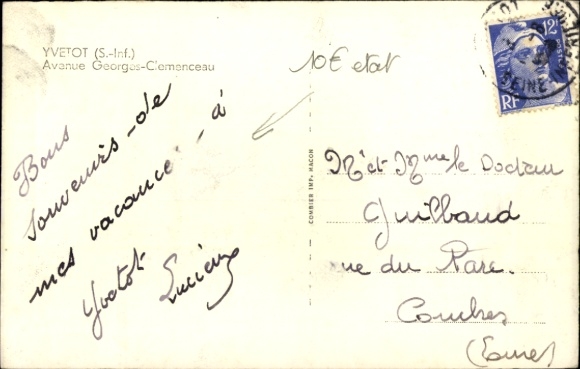 YVETOT (S.-Inf.)
Avenue Georges-Clemenceau
Bons
souvenirs - de
mes vacances - à
Yvetot
Lucien
10€ etat
COMBIER IMP. MACON
Mr et Mme le Docteur
Guilbaud
rue du Parc.
Combres
(Eure)
12F
RF
SEINE